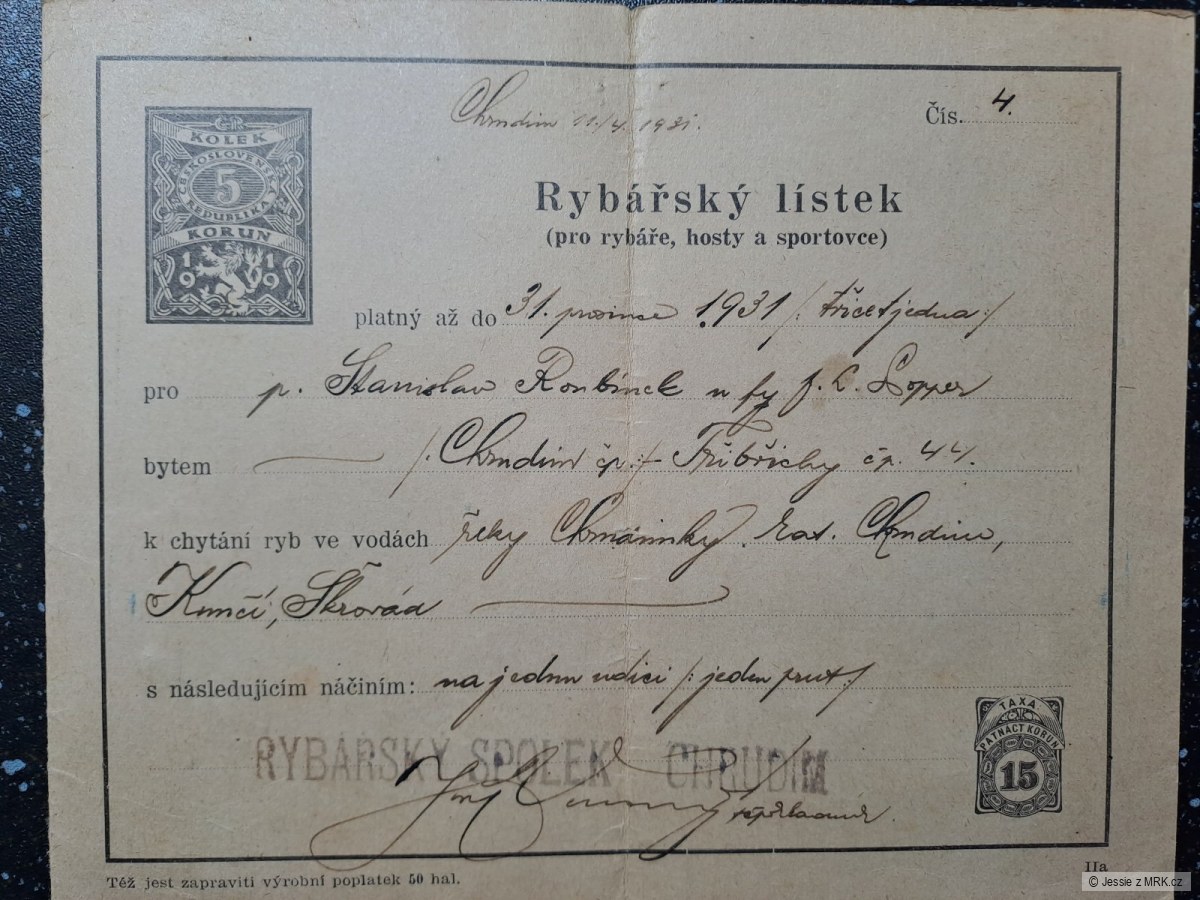 Chrudim 11./4. 1931.
Čís. 4.
KOLEK
ČESKOSLOVENSKÁ
5
REPUBLIKA
KORUN
1919
Rybářský lístek
(pro rybáře, hosty a sportovce)
platný až do 31. prosince 1931 /: třicetjedna :/
pro p. Stanislav Roubínek u fy f. L. Popper
bytem /: Chrudim čp. :/ Třibřichy čp. 44.
k chytání ryb ve vodách řeky Chrudimky. kat. Chrudim,
Kunčí, Škrovád
s následujícím náčiním: na jednu udici /: jeden prut :/
RYBÁŘSKÝ SPOLEK CHRUDIM
TAXA
PATNÁCT KORUN
15
Též jest zapraviti výrobní poplatek 50 hal.
IIa
© Jessie z MRK.cz